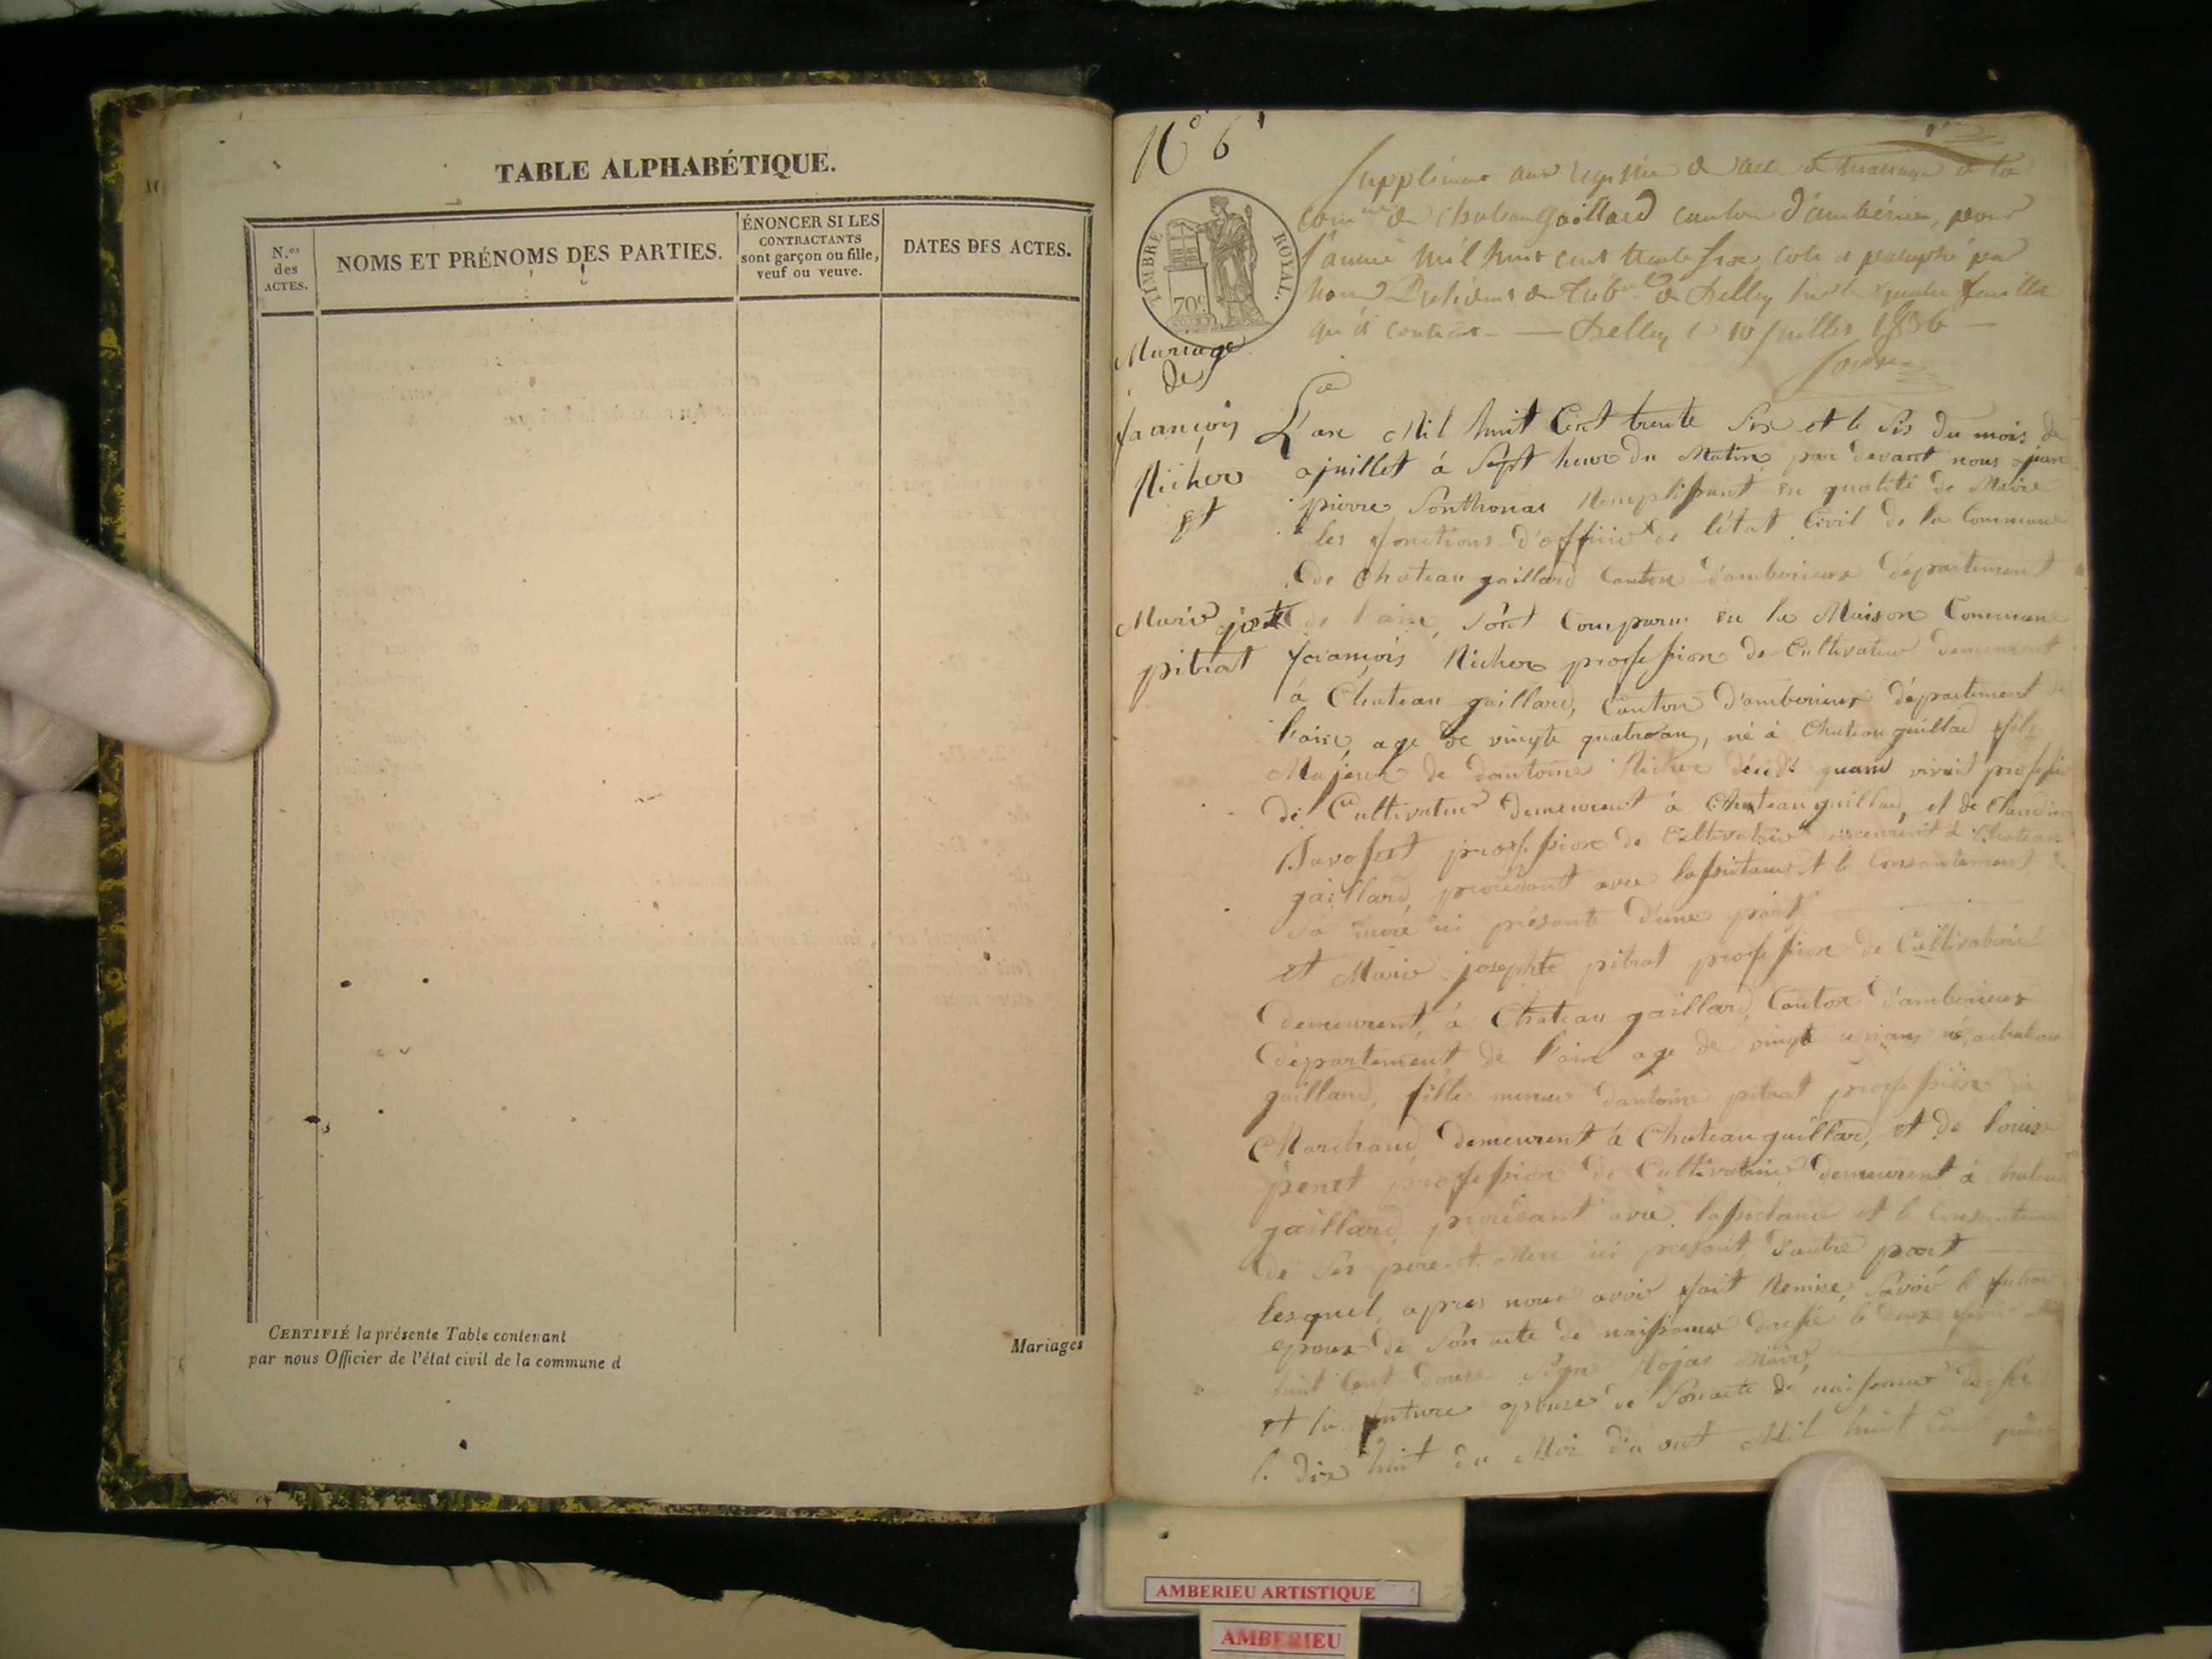 TABLE ALPHABÉTIQUE.
N.os
des
ACTES.
NOMS ET PRÉNOMS DES PARTIES.
ÉNONCER SI LES
CONTRACTANTS
sont garçon ou fille,
veuf ou veuve.
DATES DES ACTES.
CERTIFIÉ la présente Table contenant
Mariages
par nous Officier de l'état civil de la commune d
N° 6
TIMBRE ROYAL.
70c.
Supplément aux registre de mariage de la
comune de chateaugaillard canton d'ambérieu, pour
l'année mil huit cent trente six, coté et paraphé par
nous Président du Trib.al de Belley
qu'il contient — Belley le 10 juillet 1836 —
Mariage
de
françois
Richer
et
Marie jos.te
pitrat
L'an Mil huit Cent trente Six et le Sis du mois de
juillet à Sept heure du Matin par devant nous jean
pierre Sonthonas Remplissant en qualité de Maire
les fonctions d'officié de l'état Civil de la Commune
de Chateau gaillard Canton d'amberieux département
de l'ain, Sont Comparu en la Maison Commune
françois Richer profession de Cultivateur demeurent
à Chateau gaillard, Canton d'amberieux département de
l'ain, age de vingte quatre an, né à Chateau gaillard fils
Majeur de dantoine Richer quand vivait
de Cultivateur demeurent à Chateau gaillard, et de Claudine
profession de Cultivatrice demeurent à Chateau
gaillard, procédant avec lassistance et le Consentement
Sa mère ici présante d'une part
et Marie josephte pitrat profession de Cultivatrice
demeurent, à Chateau gaillard, Canton d'amberieux
département de l'ain age de vingte né, achateau
gaillard, fille dantoine pitrat profession de
Marchand, demeurent à Chateau gaillard, et de louise
peret profession de Cultivatrice demeurent à Chateau
gaillard, procédant avec lassistance et le Consentement
de Ses père et Mere ici present, d'autre part
lesquel, apres nous avoir fait Remise, Savoir le futur
epoux de Son acte de naissance dressé le deux
huit Cent douze Signé Rojat Maire,
et la future epouse de Son acte de naissance dressé
le dix huit du Moi Mil huit Cent
AMBERIEU ARTISTIQUE
AMBERIEU